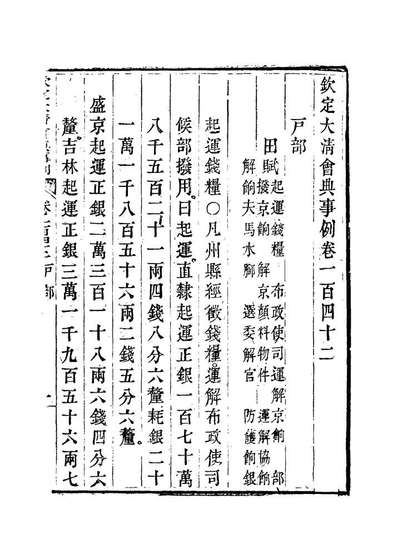 欽定大清會典事例卷一百四十二
戶部
田賦 起運錢糧 布政使司運解京餉 部
撥京餉 解京顏料物件 運解協餉
解餉夫馬水腳 選委解官 防護餉銀
起運錢糧○凡州縣經徵錢糧運解布政使司
候部撥用曰起運直隸起運正銀一百七十萬
八千五百二十一兩四錢八分六釐耗銀二十
一萬一千八百五十六兩二錢五分六釐
盛京起運正銀二萬三百一十八兩六錢四分六
釐吉林起運正銀三萬一千九百五十六兩七
戶部
一